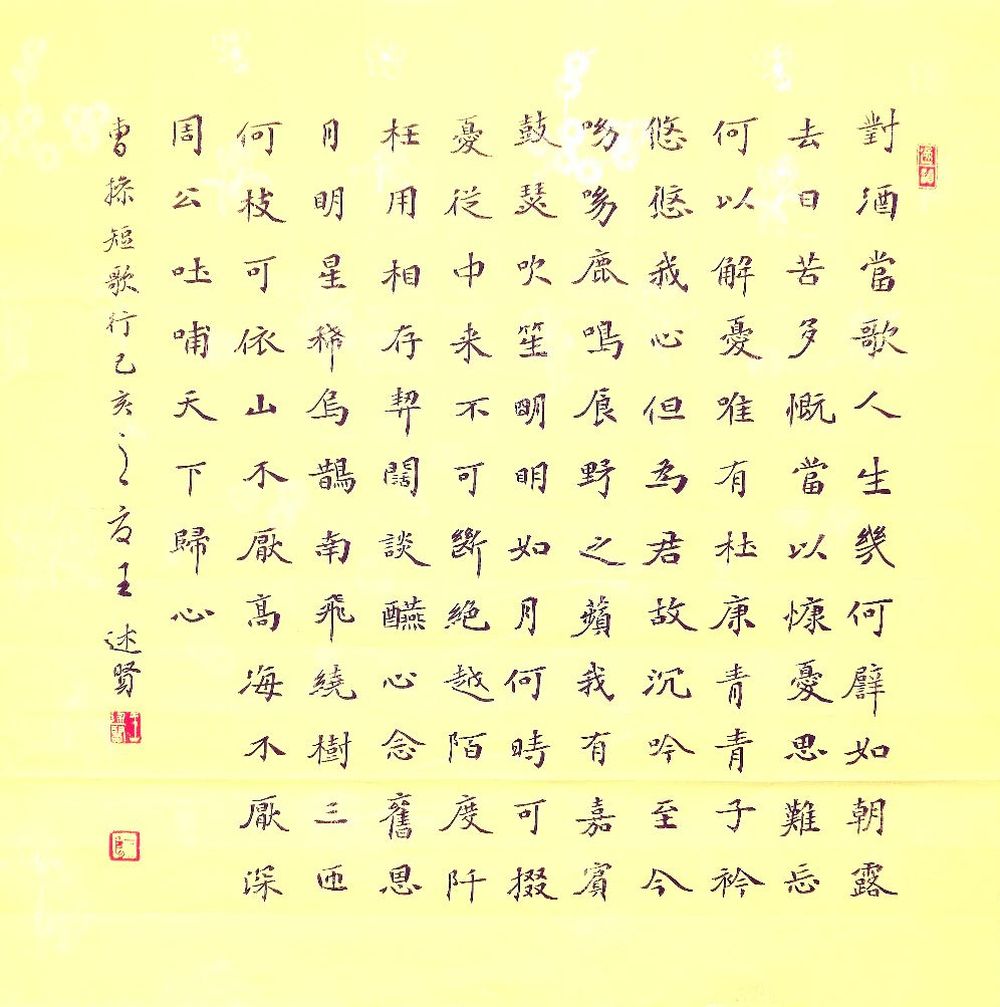 對酒當歌人生幾何譬如朝露
去日苦多慨當以慷憂思難忘
何以解憂唯有杜康青青子衿
悠悠我心但為君故沉吟至今
呦呦鹿鳴食野之蘋我有嘉賓
鼓瑟吹笙明明如月何時可掇
憂從中来不可斷絶越陌度阡
枉用相存契闊談醼心念舊恩
月明星稀烏鵲南飛繞樹三匝
何枝可依山不厭高海不厭深
周公吐哺天下歸心
曹操短歌行己亥之夏王述賢